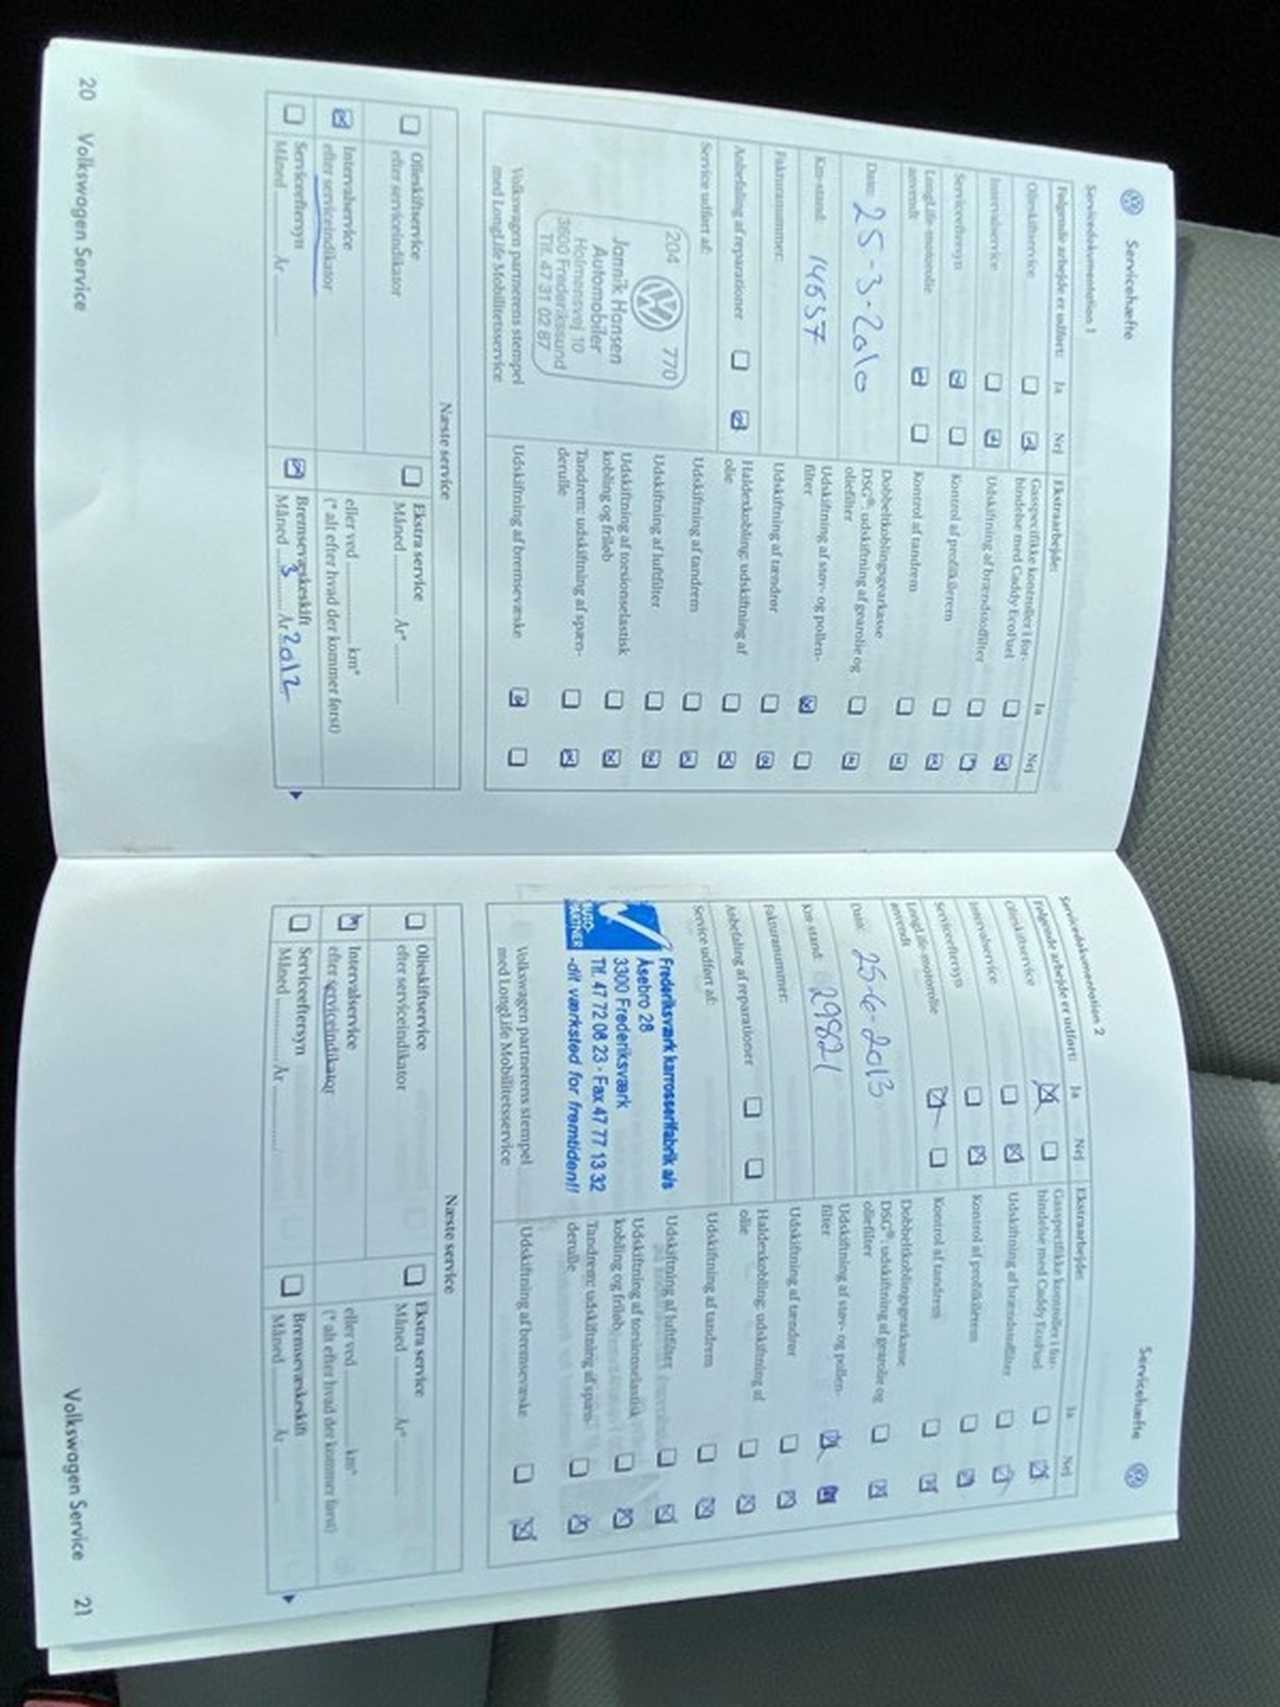 Servicehæfte
Servicedokumentation 1
Følgende arbejde er udført: Ja Nej
Olieskiftservice
Intervalservice
Serviceeftersyn
LongLife-motorolie
anvendt
Dato: 25-3-2010
Km-stand: 14657
Fakturanummer:
Anbefaling af reparationer
Service udført af:
204 770
Jannik Hansen
Automobiler
Holmensvej 10
3600 Frederikssund
Tlf. 47 31 02 87
Volkswagen partnerens stempel
med LongLife Mobilitetsservice
Ekstraarbejde: Ja Nej
Gasspecifikke kontroller i for-
bindelse med Caddy EcoFuel
Udskiftning af brændstoffilter
Kontrol af profilkilerem
Kontrol af tandrem
Dobbeltkoblingsgearkasse
DSG®: udskiftning af gearolie og
oliefilter
Udskiftning af støv- og pollen-
filter
Udskiftning af tændrør
Haldexkobling: udskiftning af
olie
Udskiftning af tandrem
Udskiftning af luftfilter
Udskiftning af torsionselastisk
kobling og friløb
Tandrem: udskiftning af spæn-
derulle
Udskiftning af bremsevæske
Næste service
Olieskiftservice
efter serviceindikator
Intervalservice
efter serviceindikator
Serviceeftersyn
Måned År
Ekstra service
Måned År*
eller ved km*
(* alt efter hvad der kommer først)
Bremsevæskeskift
Måned 3 År 2012
20 Volkswagen Service
Servicehæfte
Servicedokumentation 2
Følgende arbejde er udført: Ja Nej
Olieskiftservice
Intervalservice
Serviceeftersyn
LongLife-motorolie
anvendt
Dato: 25-6-2013
Km-stand: 29821
Fakturanummer:
Anbefaling af reparationer
Service udført af:
AUTO-
PARTNER
Frederiksværk karrosserifabrik a/s
Åsebro 28
3300 Frederiksværk
Tlf. 47 72 08 23 · Fax 47 77 13 32
-dit værksted for fremtiden!!
Volkswagen partnerens stempel
med LongLife Mobilitetsservice
Ekstraarbejde: Ja Nej
Gasspecifikke kontroller i for-
bindelse med Caddy EcoFuel
Udskiftning af brændstoffilter
Kontrol af profilkilerem
Kontrol af tandrem
Dobbeltkoblingsgearkasse
DSG®: udskiftning af gearolie og
oliefilter
Udskiftning af støv- og pollen-
filter
Udskiftning af tændrør
Haldexkobling: udskiftning af
olie
Udskiftning af tandrem
Udskiftning af luftfilter
Udskiftning af torsionselastisk
kobling og friløb
Tandrem: udskiftning af spæn-
derulle
Udskiftning af bremsevæske
Næste service
Olieskiftservice
efter serviceindikator
Intervalservice
efter serviceindikator
Serviceeftersyn
Måned År
Ekstra service
Måned År*
eller ved km*
(* alt efter hvad der kommer først)
Bremsevæskeskift
Måned År
Volkswagen Service 21